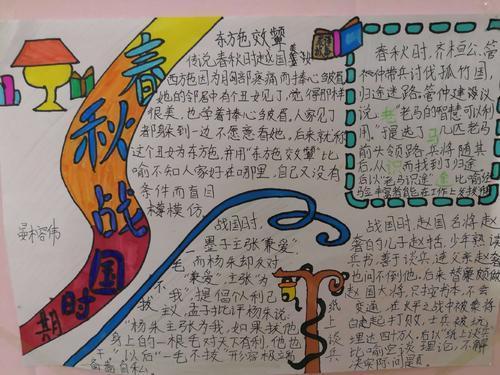 春秋战国
时期
东方色效颦
传说春秋时越国美
西方施因为胸部疼痛而捧心皱眉
她的邻居中有个丑女见了,觉得那样
很美,也学着捧心皱眉,人家见了
都躲到一边不愿意看她,后来就称
这个丑女为东施,并用“东方色效颦”比
喻不知人家好在哪里,自己又没有
条件而盲目
模仿
春秋时,齐桓公、管
仲带兵讨伐孤竹国
归途迷路,管仲建议
说,“老马的智慧可以利
用,”于是选了几匹老马
前头领路,兵将随其
后,从而找到了归途。
后以“老马识途”比喻
战国时,
墨子主张“兼爱”,
而杨朱却反对
“兼爱”,主张“为
我”,提倡“损己利
孟子批评杨朱说
“杨朱主张为我,如果拔他
身上的一根毛对天下有利,他也
干”,以后“一毛不拔”形容极端
自私
战国时,赵国名将赵
奢的儿子赵括,少年熟读
兵书,善于谈兵,连父亲赵奢
也问不倒他,后来替廉颇为
赵国大将,只按书本,不会
变通,在长平之战中被秦将
白起打败,士兵被坑
埋达四十万,后以“纸上谈兵”
比喻空谈理论,不解
决实际问题
纸上谈兵